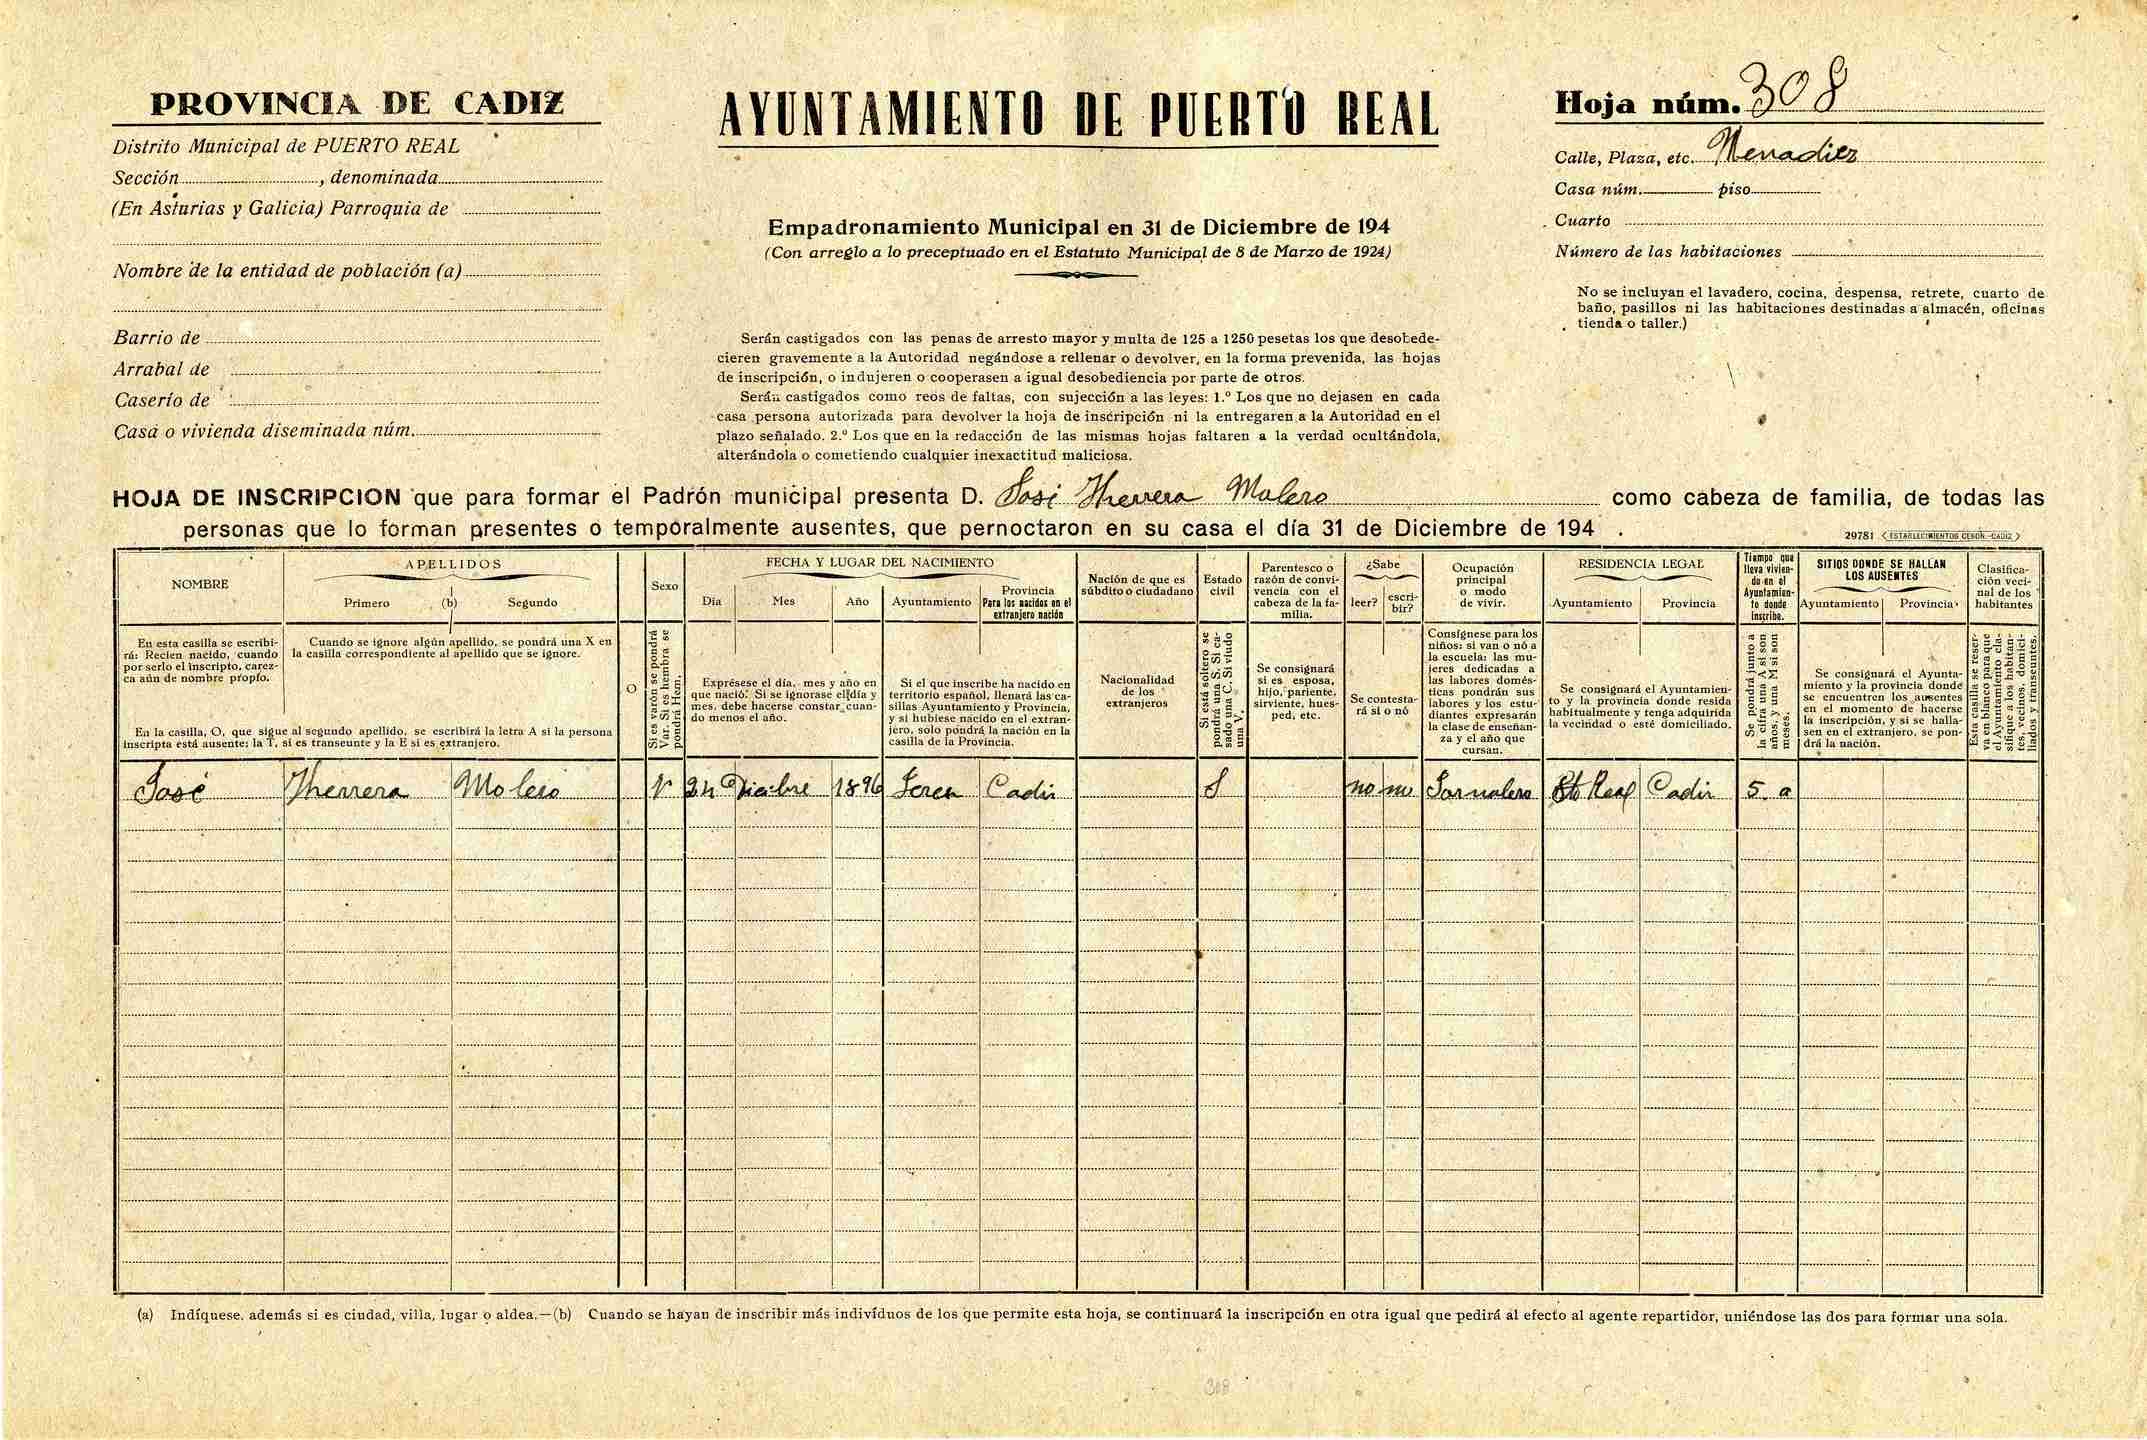 PROVINCIA DE CADIZ
Distrito Municipal de PUERTO REAL
Sección, denominada
(En Asturias y Galicia) Parroquia de
Nombre de la entidad de población (a)
Barrio de
Arrabal de
Caserío de
Casa o vivienda diseminada núm.
AYUNTAMIENTO DE PUERTO REAL
Empadronamiento Municipal en 31 de Diciembre de 194
(Con arreglo a lo preceptuado en el Estatuto Municipal de 8 de Marzo de 1924)
Serán castigados con las penas de arresto mayor y multa de 125 a 1250 pesetas los que desobede-
cieren gravemente a la Autoridad negándose a rellenar o devolver, en la forma prevenida, las hojas
de inscripción, o indujeren o cooperasen a igual desobediencia por parte de otros.
Serán castigados como reos de faltas, con sujección a las leyes: 1.º Los que no dejasen en cada
casa persona autorizada para devolver la hoja de inscripción ni la entregaren a la Autoridad en el
plazo señalado. 2.º Los que en la redacción de las mismas hojas faltaren a la verdad ocultándola,
alterándola o cometiendo cualquier inexactitud maliciosa.
Hoja núm. 308
Calle, Plaza, etc.
Casa núm. piso
Cuarto
Número de las habitaciones
No se incluyan el lavadero, cocina, despensa, retrete, cuarto de
baño, pasillos ni las habitaciones destinadas a almacén, oficinas
tienda o taller.)
HOJA DE INSCRIPCION que para formar el Padrón municipal presenta D. José Herrera Molero como cabeza de familia, de todas las
personas que lo forman presentes o temporalmente ausentes, que pernoctaron en su casa el día 31 de Diciembre de 194 .
29781 ESTABLECIMIENTOS CERÓN.-CADIZ
NOMBRE
En esta casilla se escribi-
rá: Recien nacido, cuando
por serlo el inscripto, carez-
ca aún de nombre propio.
APELLIDOS
Primero (b) Segundo
Cuando se ignore algún apellido, se pondrá una X en
la casilla correspondiente al apellido que se ignore.
En la casilla, O, que sigue al segundo apellido, se escribirá la letra A si la persona
inscripta está ausente; la T, si es transeunte y la E si es extranjero.
O
Sexo
Si es varón se pondrá
Var. Si es hembra se
pondrá Hem.
FECHA Y LUGAR DEL NACIMIENTO
Dia Mes Año Ayuntamiento
Provincia
Para los nacidos en el
extranjero nación
Exprésese el día, mes y año en
que nació. Si se ignorase el día y
mes, debe hacerse constar cuan-
do menos el año.
Si el que inscribe ha nacido en
territorio español, llenará las ca-
sillas Ayuntamiento y Provincia,
y si hubiese nacido en el extran-
jero, solo pondrá la nación en la
casilla de la Provincia.
Nación de que es
súbdito o ciudadano
Nacionalidad
de los
extranjeros
Estado
civil
Si está soltero se
pondrá una S. Si ca-
sado una C. Si viudo
una V.
Parentesco o
razón de convi-
vencia con el
cabeza de la fa-
milia.
Se consignará
si es esposa,
hijo, pariente,
sirviente, hues-
ped, etc.
¿Sabe
leer? escri-
bir?
Se contesta-
rá si o nó
Ocupación
principal
o modo
de vivir.
Consígnese para los
niños: si van o nó a
la escuela; las mu-
jeres dedicadas a
las labores domés-
ticas pondrán sus
labores y los estu-
diantes expresarán
la clase de enseñan-
za y el año que
cursan.
RESIDENCIA LEGAL
Ayuntamiento Provincia
Se consignará el Ayuntamien-
to y la provincia donde resida
habitualmente y tenga adquirida
la vecindad o esté domiciliado.
Tiempo que
lleva vivien-
do en el
Ayuntamien-
to donde
inscribe.
Se pondrá junto a
la cifra una A si son
años, y una M si son
meses.
SITIOS DONDE SE HALLAN
LOS AUSENTES
Ayuntamiento Provincia
Se consignará el Ayunta-
miento y la provincia donde
se encuentren los ausentes
en el momento de hacerse
la inscripción, y si se halla-
sen en el extranjero, se pon-
drá la nación.
Clasifica-
ción veci-
nal de los
habitantes
Esta casilla se reser-
va en blanco para que
el Ayuntamiento cla-
sifique a los habitan-
tes, vecinos, domici-
liados y transeuntes.
José Herrera Molero V 24 Dicibre 1896 Jerez Cadiz S no no Jornalero Pto Real Cadiz 5 a
(a) Indíquese, además si es ciudad, villa, lugar o aldea.—(b) Cuando se hayan de inscribir más indivíduos de los que permite esta hoja, se continuará la inscripción en otra igual que pedirá al efecto al agente repartidor, uniéndose las dos para formar una sola.
308